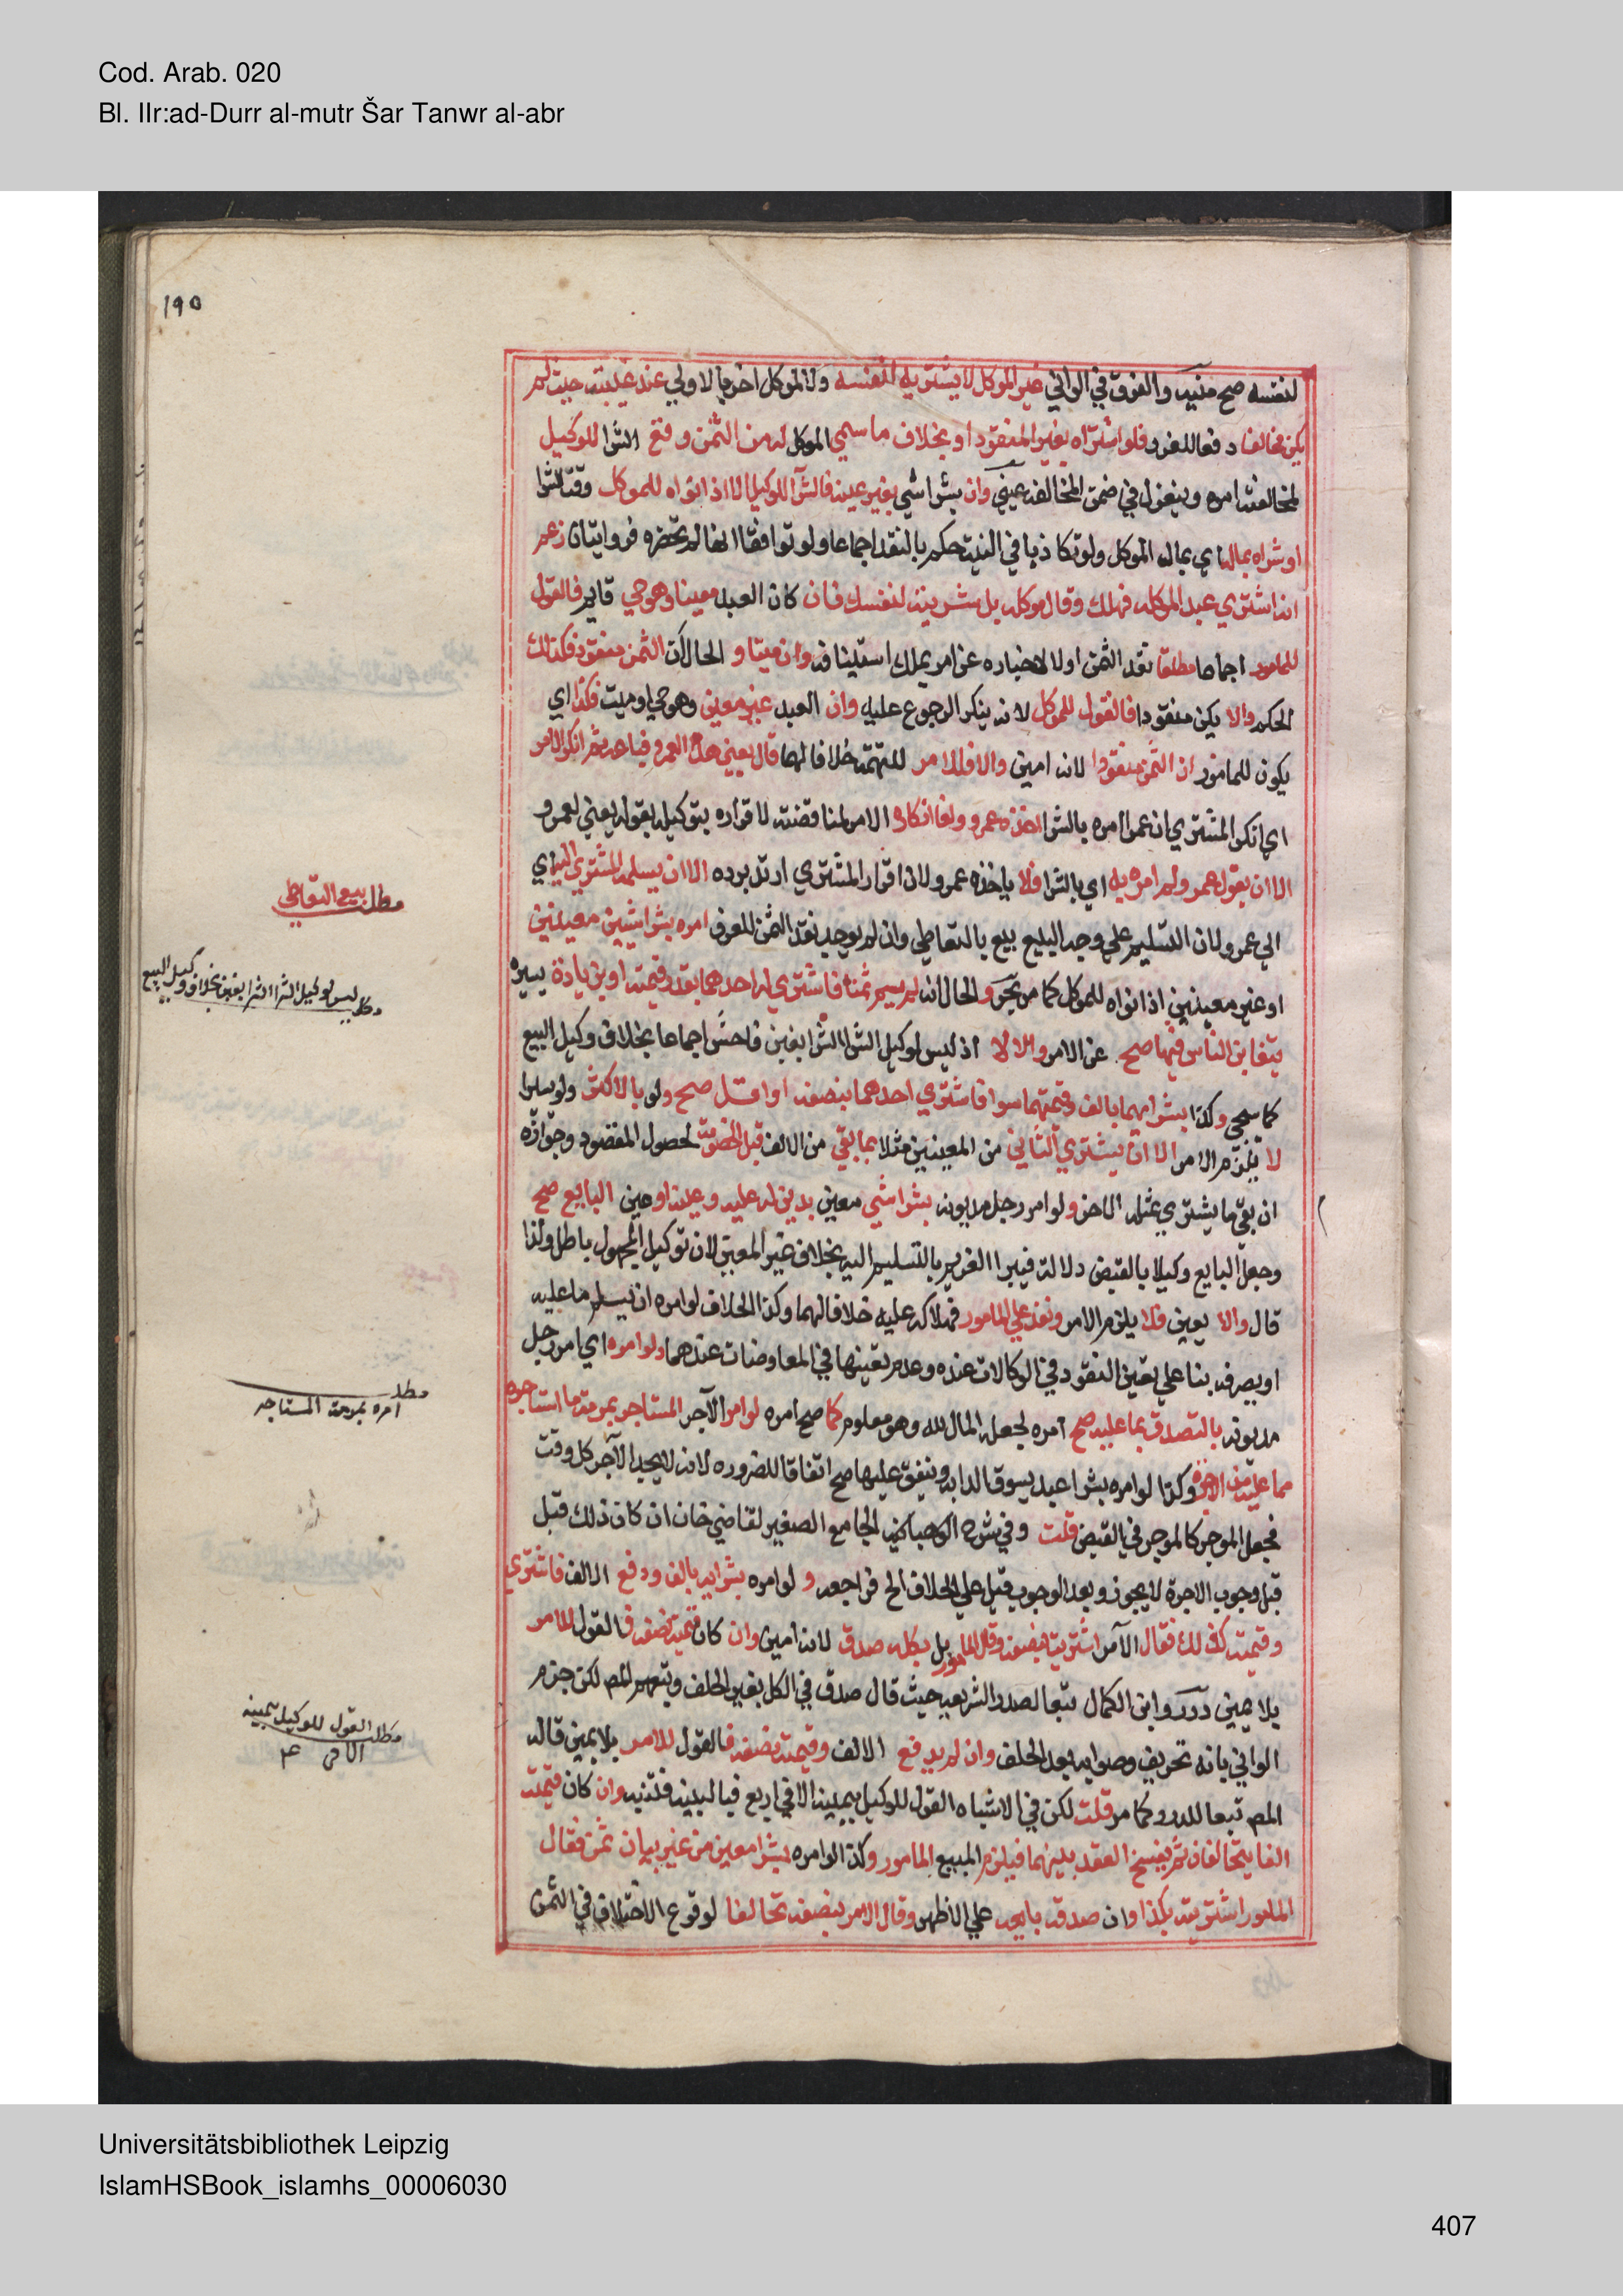 Cod. Arab. 020
Bl. IIr:ad-Durr al-mutr Šar Tanwr al-abr
١٩٥
لنفسه صح منيه والفرق في الواني غير الموكل لا يشتريه لنفسه ولا لموكل اخر بالاولى عند غيبته حيث لم
يكن مخالفا دفعا للغرر فلو اشتراه بغير النقود او بخلاف ما سمى الموكل له من الثمن وقع الشرا للوكيل
لمخالفته امره وينعزل في ضمن المخالفه عيني وان بشرا شي بغير عينه فالشرا للوكيل الا اذا نواه للموكل وقت الشرا
او شراه بماله اي بمال الموكل ولو تكاذبا في النية حكم بالنقد اجماعا ولو توافقا انها لم تحضره فروايتان زعم
انه اشترى عبدا لموكله فهلك وقال موكله بل شريته لنفسك فان كان العبد معينا وهو حي قايم فالقول
للمامور اجماعا مطلقا نقد الثمن اولا لاخباره عن امر يملك استينافه وان ميتا و الحال ان الثمن منقود فكذلك
الحكم والا يكن منقودا فالقول للموكل لانه ينكر الرجوع عليه وان العبد غير معين وهو حي او ميت فكذا اي
يكون للمامور ان الثمن منقودا لانه امين والا فللامر للتهمة خلافا لهما قال بعني هذا لعمرو فباعه ثم انكر الامر
اي انكر المشتري ان عمرا امره بالشرا اخذه عمرو ولغا انكاره الامر لمناقضته لاقراره بتوكيله بقوله بعني لعمرو
الا ان يقول عمرو لم امره به اي بالشرا فلا ياخذه عمرو لان اقرار المشتري ارتد برده الا ان يسلمه المشتري اليه اي
الى عمرو لان التسليم على وجه البيع بيع بالتعاطي وان لم يوجد نقد الثمن للعرف امره بشرا شيين معينين
او غير معينين اذا نواه للموكل كما مر بحر والحال انه لم يسم ثمنا فاشترى له احدهما بقدر قيمته او بزيادة يسيره
يتغابن الناس فيها صح عن الامر والا لا اذ ليس لوكيل الشرا الشرا بغبن فاحش اجماعا بخلاف وكيل البيع
كما سيجي وكذا بشرايهما بالف وقيمتهما سوا فاشترى احدهما بنصفه او اقل صح ولو بالاكثر ولو يسيرا
لا يلزم الامر الا ان يشتري الثاني من المعينين مثلا بما بقي من الالف قبل الخصومة لحصول المقصود وجوازه
ان بقي ما يشتري بمثله الاخر ولو امر رجل مديونه بشرا شي معين بدين له عليه وعينه او عين البايع صح
وجعل البايع وكيلا بالقبض دلالة فيبرا الغريم بالتسليم اليه بخلاف غير المعين لان توكيل المجهول باطل ولذا
قال والا يعين فلا يلزم الامر ونفذ على المامور فهلاكه عليه خلافا لهما وكذا الخلاف لو امره ان يسلم ما عليه
او يصرفه بنا على تعين النقود في الوكالات عنده وعدم تعينها في المعاوضات عندهما ولو امره اي امر رجل
مديونه بالتصدق بما عليه صح امره لجعله المال لله وهو معلوم كما صح امره لو امر الآجر المستاجر بمرمة ما استاجره
مما عليه من الاجرة وكذا لو امره بشرا عبد يسوق الدابه وينفق عليها صح اتفاقا للضروره لانه لا يجد الآجر كل وقت
فجعل الموجر كالموجر في القبض قلت وفي شرح الوهبانيه الجامع الصغير لقاضي خان ان كان ذلك قبل
قبل وجوب الاجرة لا يجوز وبعد الوجوب قيل على الخلاف الخ فراجعه و لو امره بشرايه بالف ودفع الالف فاشترى
وقيمته كذلك فقال الآمر اشتريته بنصفه وقال المامور بل بكله صدق لانه امين وان كان قيمته نصفه فالقول للامر
بلا يمين درر وابن الكمال تبعا لصدر الشريعه حيث قال صدق في الكل بغير الحلف وتبعهم المص لكن جزم
الواني بانه تحريف وصوابه بعد الحلف وان لم يدفع الالف وقيمته نصفه فالقول للامر بلا يمين قاله
المص تبعا للدرر كما مر قلت لكن في الاشباه القول للوكيل بيمينه الا في اربع فبالبينه فتنبه وان كان قيمته
الفا يتحالفان ثم يفسخ العقد بينهما فيلزم المبيع المامور وكذا لو امره بشرا معين من غير بيان ثمن فقال
المامور اشتريته بكذا وان صدقه بايعه على الاظهر وقال الامر بنصفه تحالفا لوقوع الاختلاف في الثمن
مطلب بيع التعاطي
مطلب ليس لوكيل الشرا الشرا بغبن بخلاف وكيل البيع
مطلب
امره بمرمة المستاجر
مطلب القول للوكيل بيمينه
الا في ٤
Universitätsbibliothek Leipzig
IslamHSBook_islamhs_00006030
407